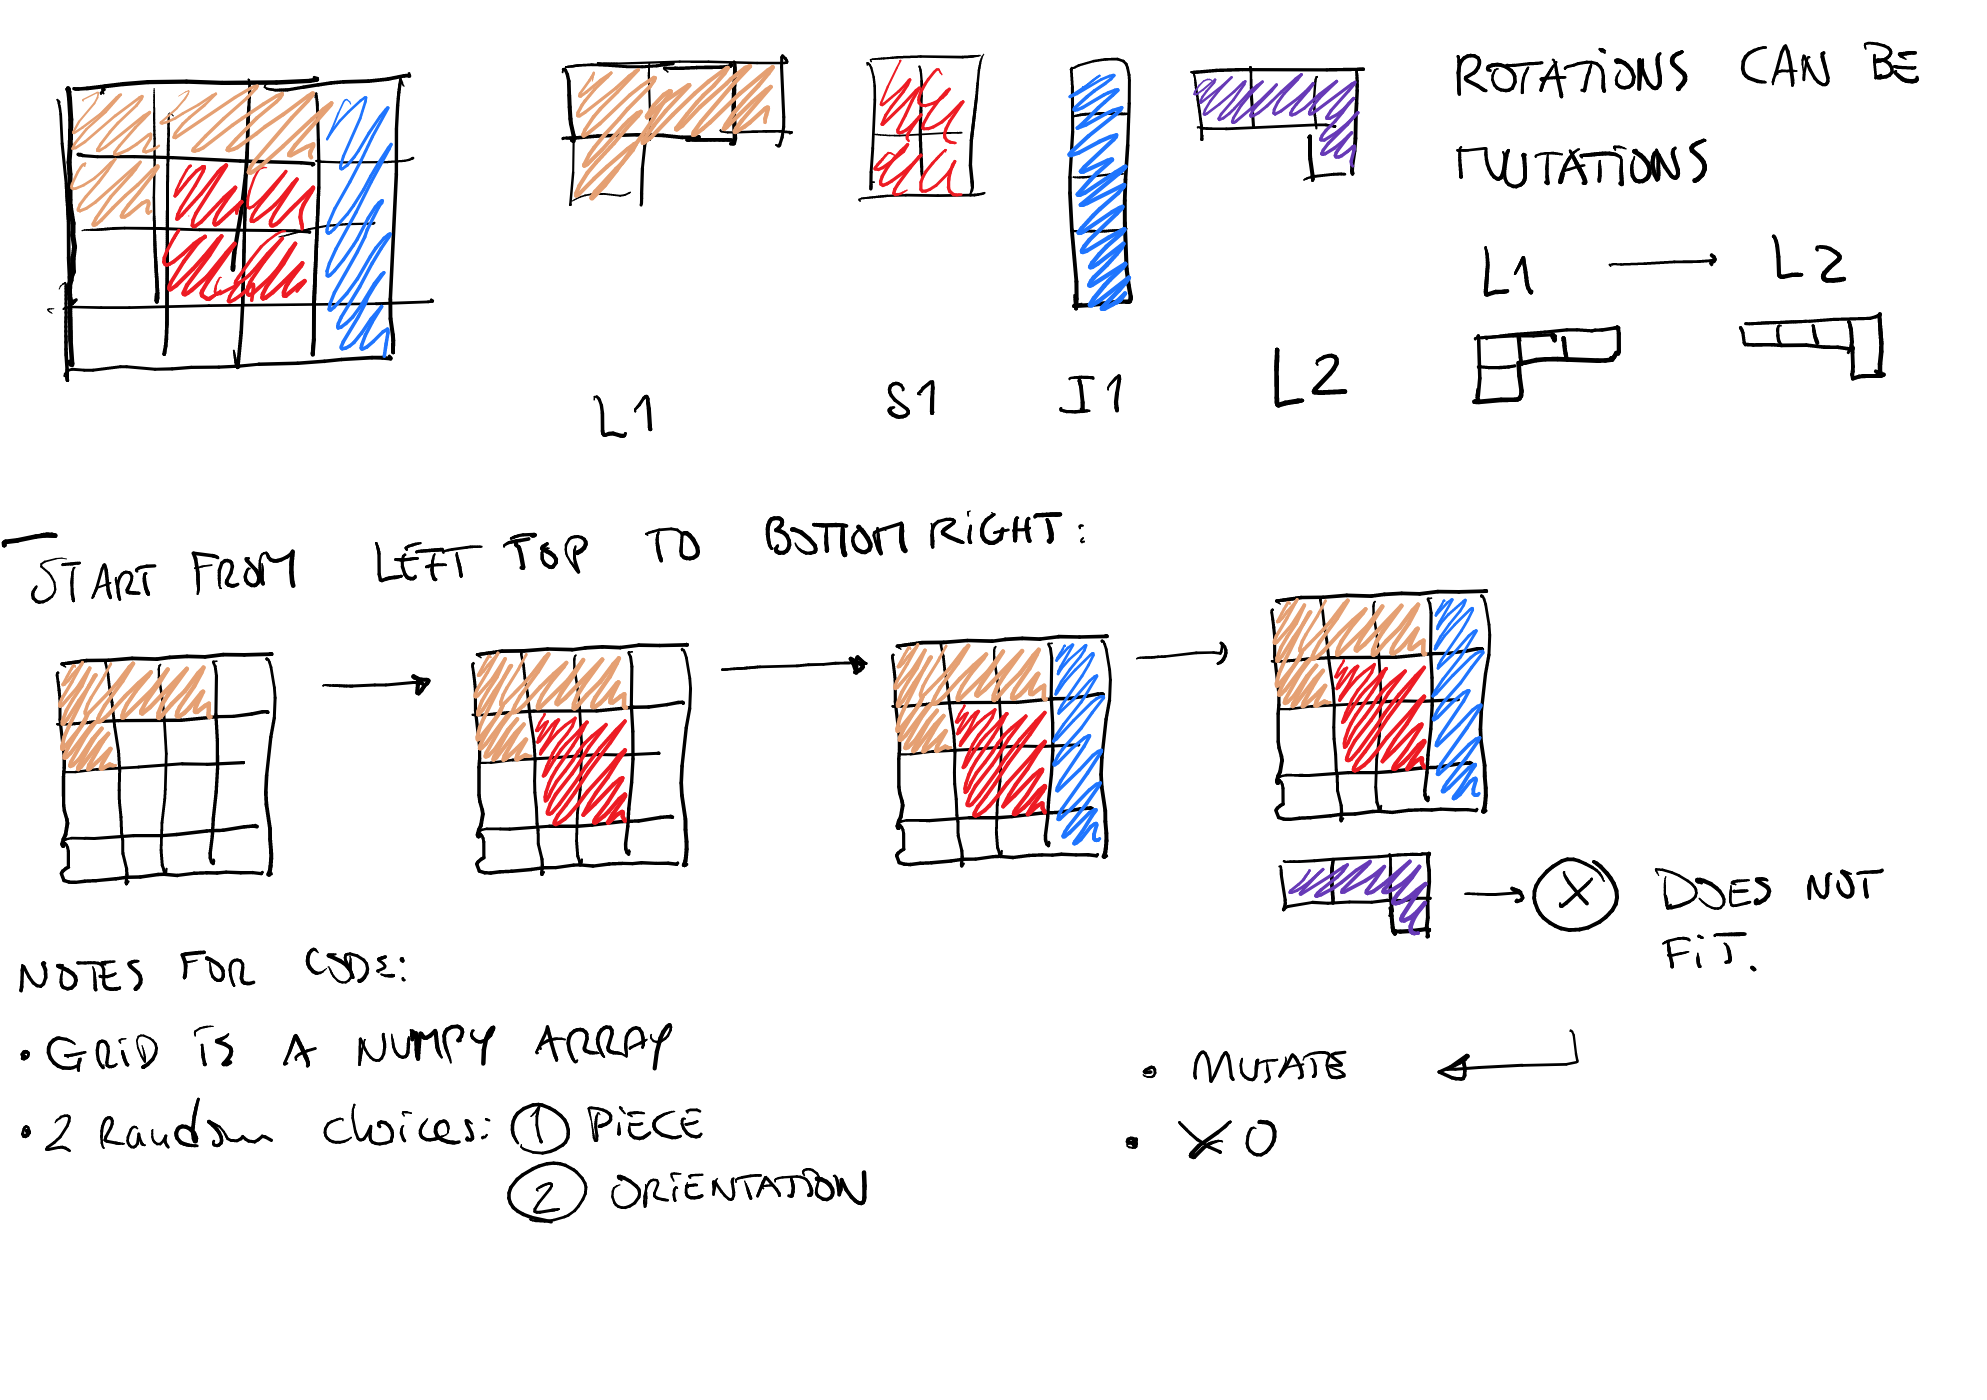 ROTATIONS CAN BE
MUTATIONS
L1 → L2
L1
S1
I1
L2
START FROM LEFT TOP TO BOTTOM RIGHT:
X
DOES NOT
FIT.
NOTES FOR CODE:
• GRID IS A NUMPY ARRAY
• 2 Random choices: 1 PIECE
2 ORIENTATION
• MUTATE
• XO